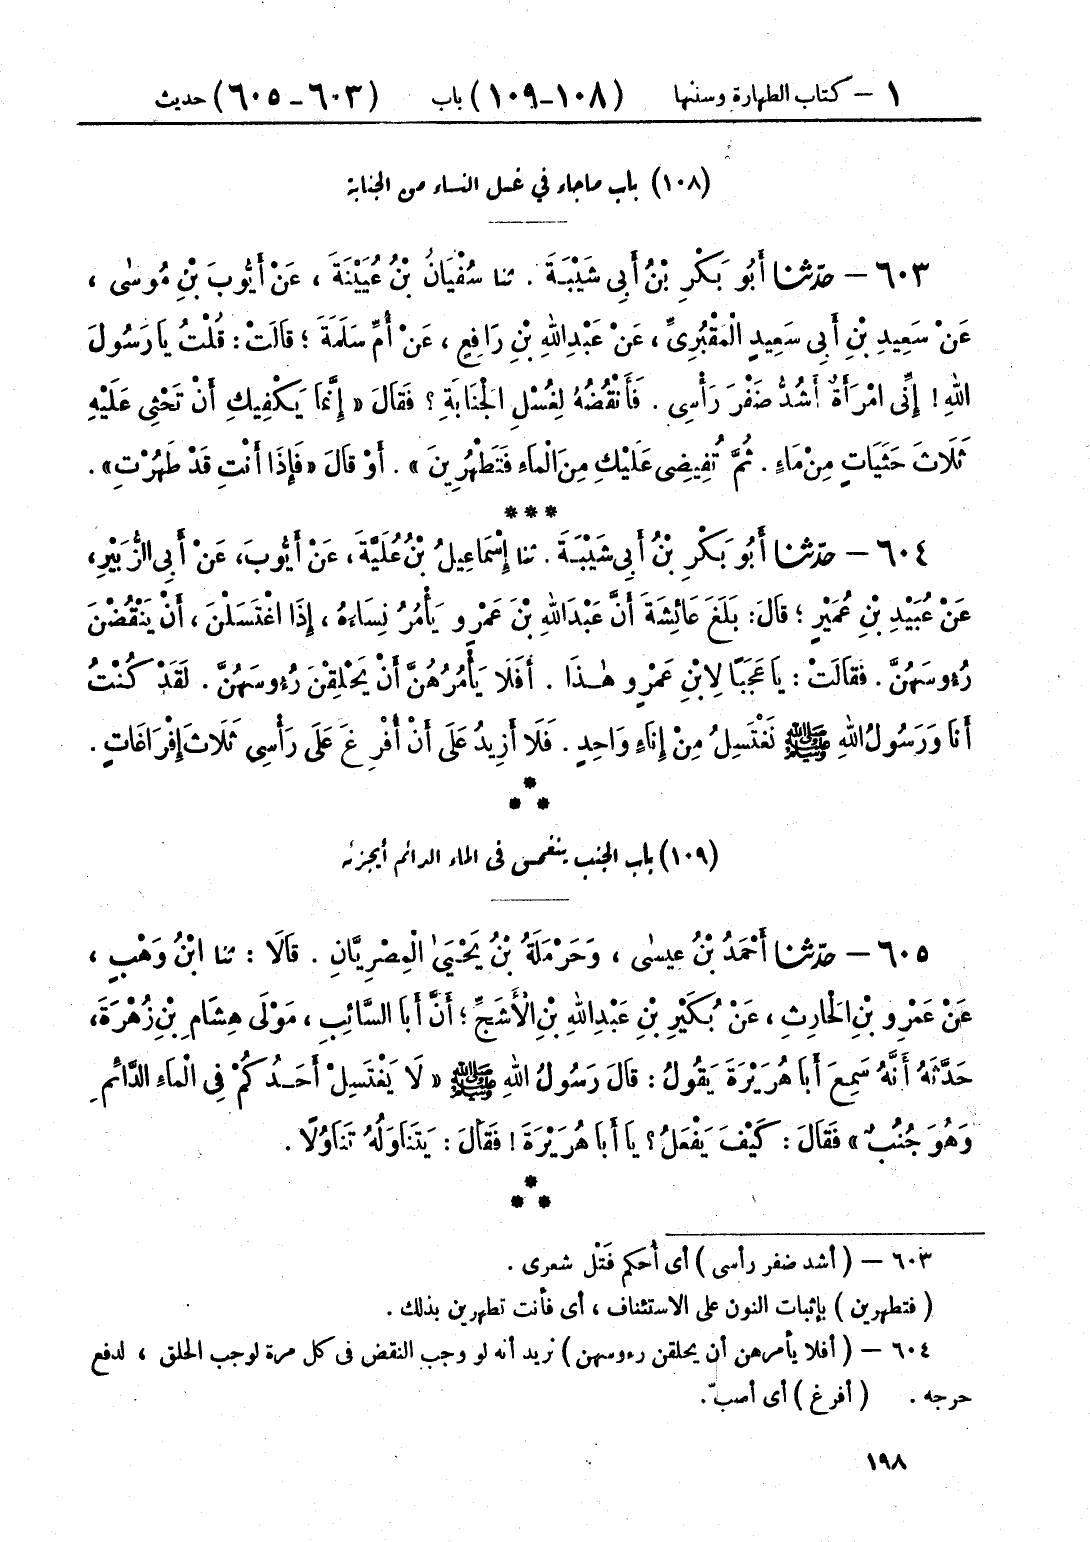 ١ – كتاب الطهارة وسننها (١٠٨-١٠٩) باب (٦٠٣-٦٠٥) حديث
(١٠٨) باب ماجاء في غسل النساء من الجنابة
٦٠٣ – حدّثنا أَبُو بَكْرِ بْنُ أَبِي شَيْبَةَ . ثنا سُفْيَانُ بْنُ عُيَيْنَةَ ، عَنْ أَيُّوبَ بْنِ مُوسٰى ،
عَنْ سَعِيدِ بْنِ أَبِي سَعِيدٍ الْمَقْبُرِيِّ ، عَنْ عَبْدِاللهِ بْنِ رَافِعٍ ، عَنْ أُمِّ سَلَمَةَ ؛ قَالَتْ : قُلْتُ يَا رَسُولَ
اللهِ ! إِنِّي امْرَأَةٌ أَشُدُّ ضَفْرَ رَأْسِي . فَأَنْقُضُهُ لِغُسْلِ الْجَنَابَةِ ؟ فَقَالَ « إِنَّمَا يَكْفِيكِ أَنْ تَحْثِي عَلَيْهِ
ثَلَاثَ حَثَيَاتٍ مِنْ مَاءٍ . ثُمَّ تُفِيضِي عَلَيْكِ مِنَ الْمَاءِ فَتَطْهُرِينَ » . أَوْ قَالَ « فَإِذَا أَنْتِ قَدْ طَهُرْتِ» .
***
٦٠٤ – حدّثنا أَبُو بَكْرِ بْنُ أَبِي شَيْبَةَ . ثنا إِسْمَاعِيلُ بْنُ عُلَيَّةَ ، عَنْ أَيُّوبَ، عَنْ أَبِي الزُّبَيْرِ،
عَنْ عُبَيْدِ بْنِ عُمَيْرٍ ؛ قَالَ: بَلَغَ عَائِشَةَ أَنَّ عَبْدَاللهِ بْنَ عَمْرٍو يَأْمُرُ نِسَاءَهُ ، إِذَا اغْتَسَلْنَ ، أَنْ يَنْقُضْنَ
رُءُوسَهُنَّ . فَقَالَتْ : يَا عَجَبًا لِابْنِ عَمْرٍو هٰـذَا . أَفَلَا يَأْمُرُهُنَّ أَنْ يَحْلِقْنَ رُءُوسَهُنَّ . لَقَدْ كُنْتُ
أَنَا وَرَسُولُ اللهِ ﷺ نَغْتَسِلُ مِنْ إِنَاءٍ وَاحِدٍ . فَلَا أَزِيدُ عَلَى أَنْ أُفْرِغَ عَلَى رَأْسِي ثَلَاثَ إِفْرَاغَاتٍ .
*
* *
(١٠٩) باب الجنب ينغمس في الماء الدائم أيجزئه
٦٠٥ – حدّثنا أَحْمَدُ بْنُ عِيسٰى ، وَحَرْمَلَةُ بْنُ يَحْيَىٰ الْمِصْرِيَّانِ . قَالَا : ثنا ابْنُ وَهْبٍ ،
عَنْ عَمْرِو بْنِ الْحَارِثِ ، عَنْ بُكَيْرِ بْنِ عَبْدِاللهِ بْنِ الْأَشَجِّ ؛ أَنَّ أَبَا السَّائِبِ ، مَوْلَى هِشَامِ بْنِ زُهْرَةَ،
حَدَّثَهُ أَنَّهُ سَمِعَ أَبَا هُرَيْرَةَ يَقُولُ : قَالَ رَسُولُ اللهِ ﷺ « لَا يَغْتَسِلْ أَحَدُكُمْ فِي الْمَاءِ الدَّائِمِ
وَهُوَ جُنُبٌ » فَقَالَ : كَيْفَ يَفْعَلُ ؟ يَا أَبَا هُرَيْرَةَ ! فَقَالَ : يَتَنَاوَلُهُ تَنَاوُلًا .
*
* *
٦٠٣ – ( أشد ضفر رأسى ) أى أُحكم فَتْل شعرى .
( فتطهرين ) بإثبات النون على الاستئناف ، أى فأنت تطهرين بذلك .
٦٠٤ – ( أفلا يأمرهن أن يحلقن رءوسهن ) تريد أنه لو وجب النقض فى كل مرة لوجب الحلق ، لدفع
حرجه . ( أفرغ ) أى أصبّ.
١٩٨